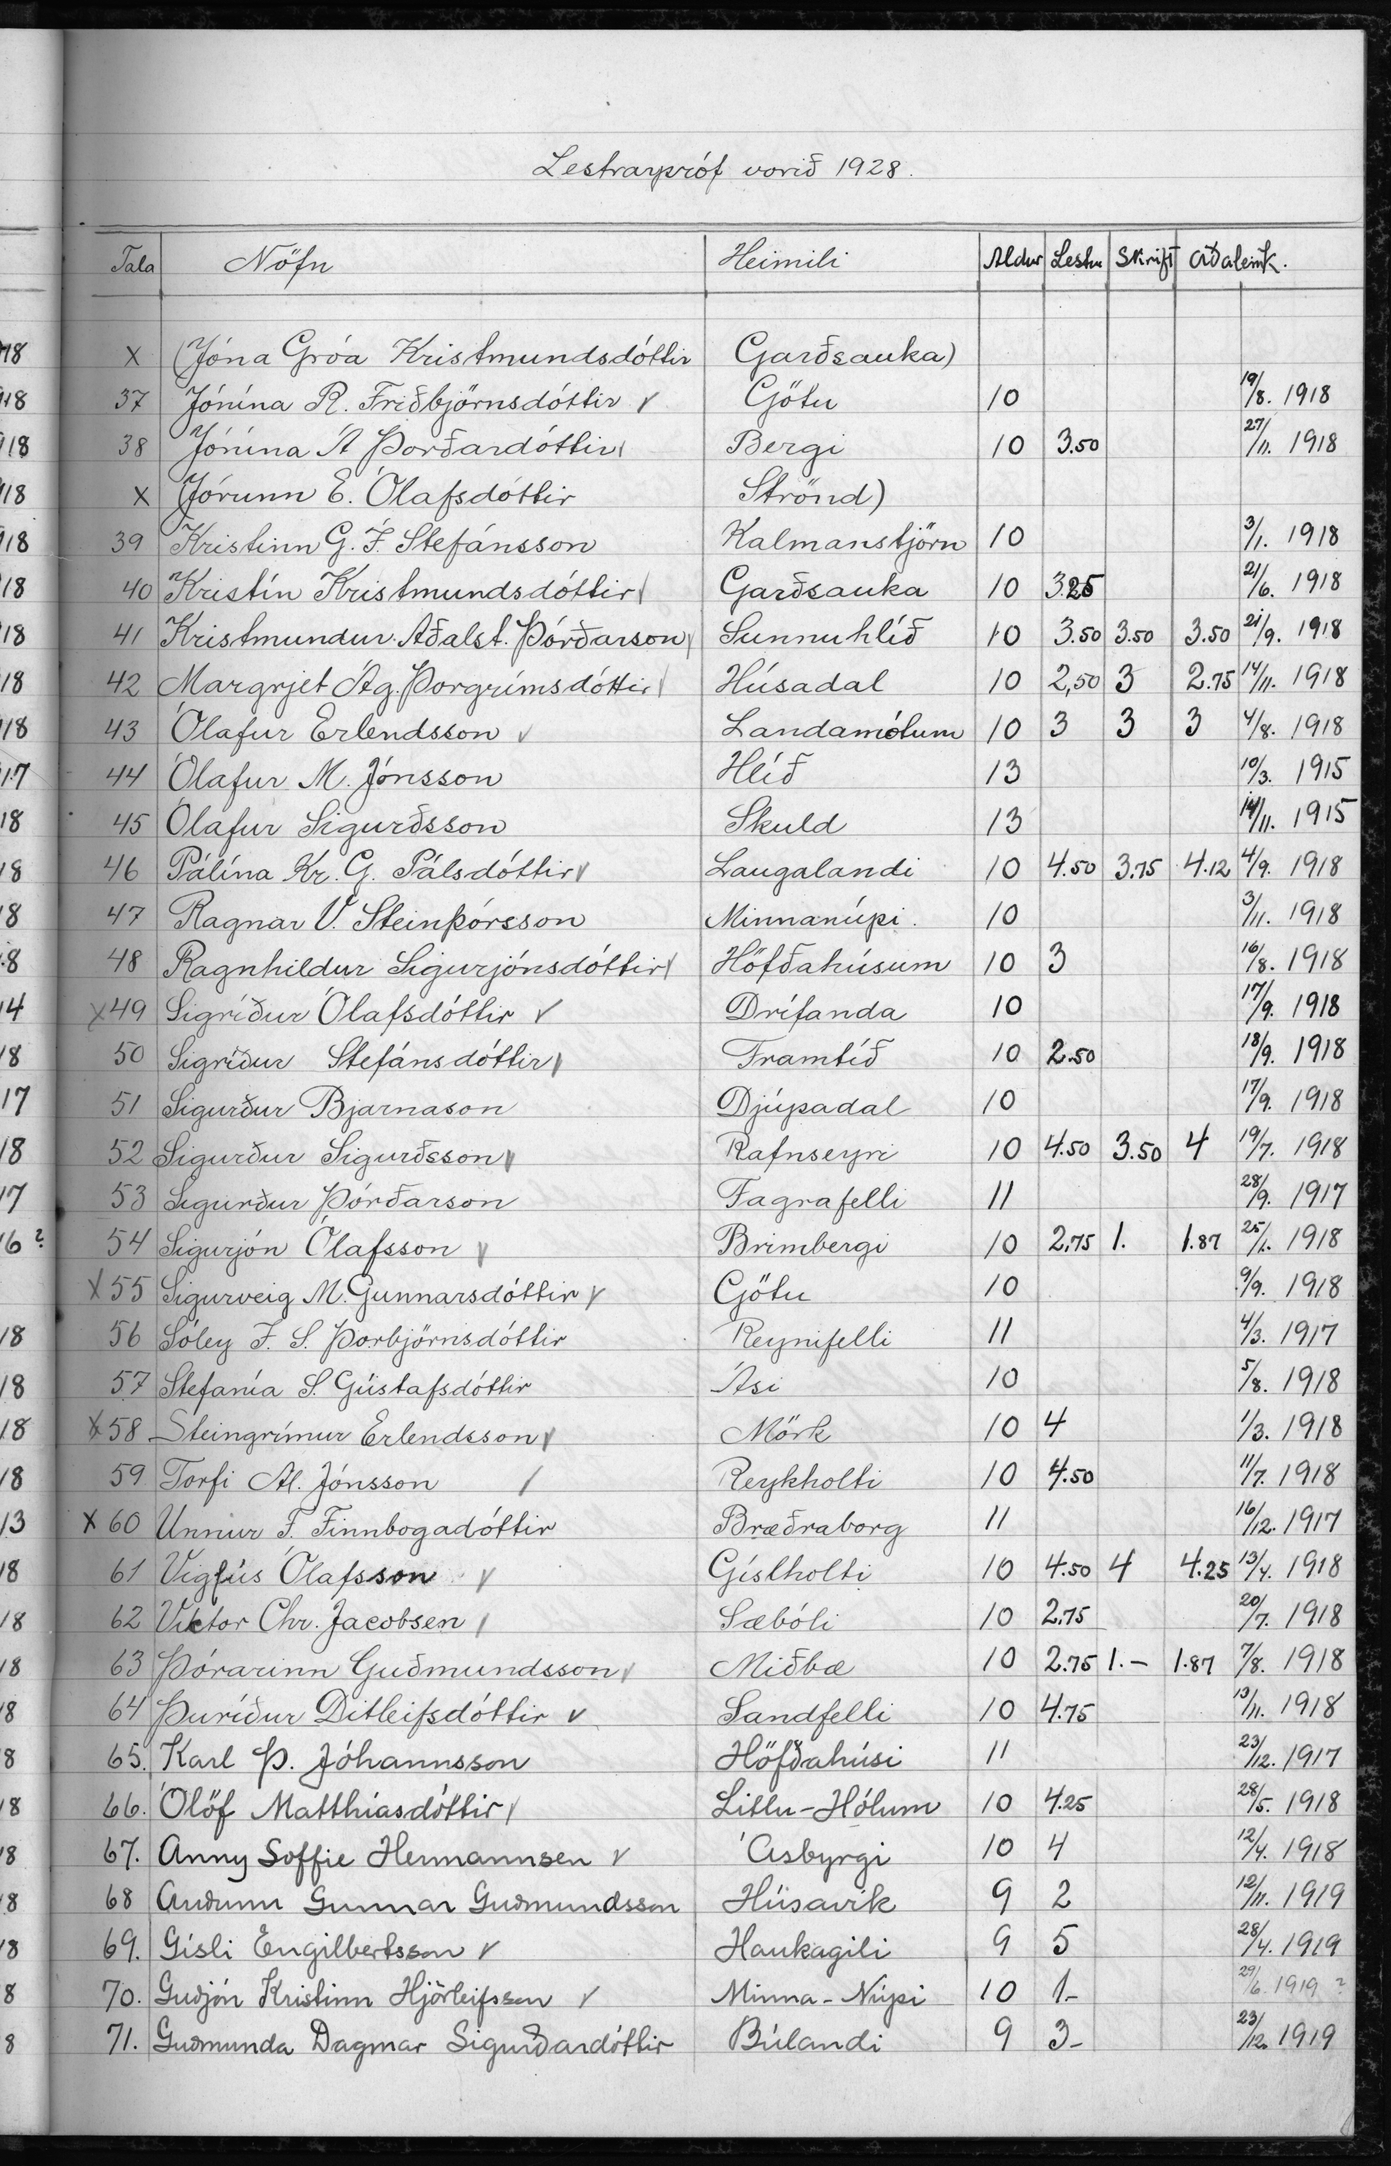 Lestrarpróf vorið 1928.
Tala Nöfn Heimili Aldur Lestur Skrift Aðaleink.
x (Jóna Gróa Kristmundsdóttir Garðsauka)
37 Jónína R. Friðbjörnsdóttir v Götu 10 19/8. 1918
38 Jónína Á Þorðardóttir Bergi 10 3.50 27/11. 1918
x (Jórunn E. Ólafsdóttir Strönd)
39 Kristinn G. F. Stefánsson Kalmanstjörn 10 3/1. 1918
40 Kristín Kristmundsdóttir Garðsauka 10 3.25 21/6. 1918
41 Kristmundur Aðalst. Þórðarson Sunnuhlíð 10 3.50 3.50 3.50 21/9. 1918
42 Margrjet Ág. Þorgrímsdóttir Húsadal 10 2,50 3 2.75 14/11. 1918
43 Ólafur Erlendsson v Landamótum 10 3 3 3 4/8. 1918
44 Ólafur M. Jónsson Hlíð 13 10/3. 1915
45 Ólafur Sigurðsson Skuld 13 14/11. 1915
46 Pálína Kr. G. Pálsdóttir v Laugalandi 10 4.50 3.75 4.12 4/9. 1918
47 Ragnar V. Steinþórsson Minnanúpi. 10 3/11. 1918
48 Ragnhildur Sigurjónsdóttir Höfðahúsum 10 3 16/8. 1918
x 49 Sigríður Ólafsdóttir v Drífanda 10 17/9. 1918
50 Sigríður Stefánsdóttir Framtíð 10 2.50 18/9. 1918
51 Sigurður Bjarnason Djúpadal 10 17/9. 1918
52 Sigurður Sigurðsson v Rafnseyri 10 4.50 3.50 4 19/7. 1918
53 Sigurður Þórðarson Fagrafelli 11 28/9. 1917
54 Sigurjón Ólafsson v Brimbergi 10 2.75 1. 1.87 25/1. 1918
x 55 Sigurveig M. Gunnarsdóttir v Götu 10 9/9. 1918
56 Sóley F. S. Þorbjörnsdóttir Reynifelli 11 4/3. 1917
57 Stefanía S. Gústafsdóttir Ási 10 5/8. 1918
x 58 Steingrímur Erlendsson v Mörk 10 4 1/3. 1918
59 Torfi Al. Jónsson Reykholti 10 4.50 11/7. 1918
x 60 Unnur F. Finnbogadóttir Bræðraborg 11 16/12. 1917
61 Vigfús Ólafsson v Gíslholti 10 4.50 4 4.25 13/4. 1918
62 Viktor Chr. Jacobsen Sæbóli 10 2.75 20/7. 1918
63 Þórarinn Guðmundsson v Miðbæ 10 2.75 1.- 1.87 7/8. 1918
64 Þuríður Ditleifsdóttir v Sandfelli 10 4.75 13/11. 1918
65. Karl Þ. Jóhannsson Höfðahúsi 11 23/12. 1917
66. Ólöf Matthíasdóttir v Litlu-Hólum 10 4.25 28/5. 1918
67. Anny Soffie Hermannsen v Ásbyrgi 10 4 12/4. 1918
68 Auðunn Gunnar Guðmundsson Húsavík 9 2 12/11. 1919
69. Gísli Engilbertsson v Haukagili 9 5 28/4. 1919
70. Guðjón Kristinn Hjörleifsson v Minna-Núpi 10 1- 29/6. 1919 ?
71. Guðmunda Dagmar Sigurðardóttir Búlandi 9 3- 23/12. 1919